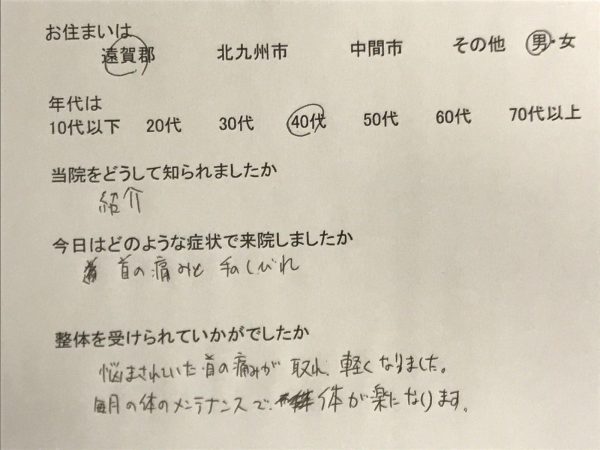 お住まいは
遠賀郡 北九州市 中間市 その他 男・女
年代は
10代以下 20代 30代 40代 50代 60代 70代以上
当院をどうして知られましたか
紹介
今日はどのような症状で来院しましたか
首の痛みと 手のしびれ
整体を受けられていかがでしたか
悩まされていた首の痛みが 取れ、軽くなりました。
毎月の体のメンテナンスで、体が楽になります。